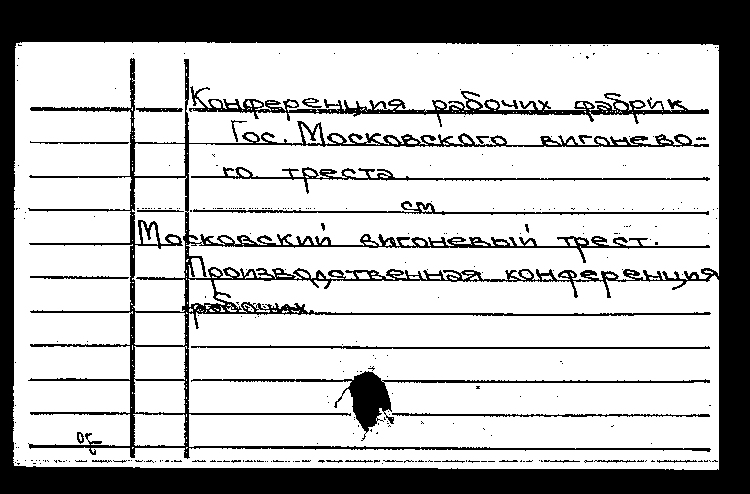 Конференция рабочих фабрик
Гос. Московского вигонево-
го треста.
см.
Московский вигоневый трест.
Производственная конференция
рабочих.